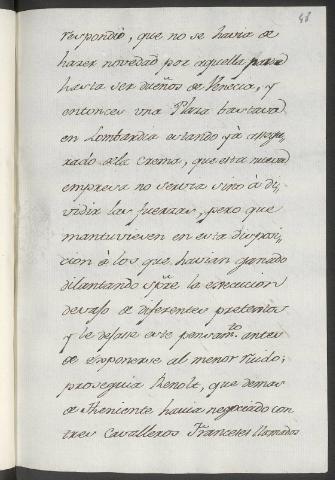 48
respondió, que no se havia de
hazer novedad por aquella parte
hasta ser dueños de Venecia, y
entonces una Plaza bastava
en Lombardia estando yà asegu,
rado de la Crema, que esta nueva
empresa no servia sino à di,
vidir las fuerzas, pero que
mantuviesen en esta disposi,
cion à los que havian ganado
dilantando spre. la execucion
debaxo de diferentes pretextos
y se dexase este pensamto. antes
de exponerse al menor ruido;
proseguia Renolt, que demas
de Theniente havia negociado con
tres Cavalleros Franceses llamados